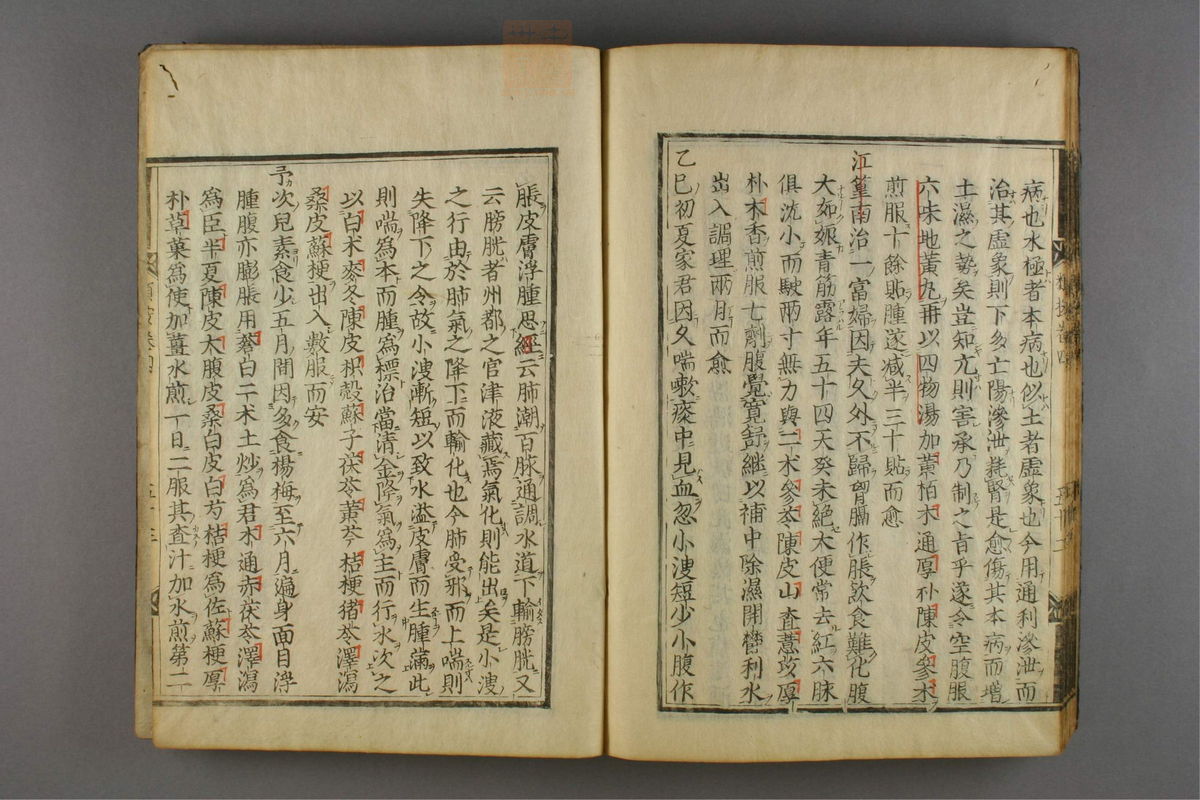 病也水極者本病也似土者虛象也今用通利滲泄而
治其虛象則下多亡陽滲泄耗腎是愈傷其本病而增
土濕之勢矣豈知亢則害承乃制之旨乎遂令空腹服
六味地黃丸再以四物湯加黃柏木通厚朴陳皮參朮
煎服十餘貼腫遂減半三十貼而愈
江篁南治一富婦因夫久外不歸胷膈作脹飲食難化腹
大如娠青筋露年五十四天癸未絕大便常去紅六脉
俱沈小而駛兩寸無力與二朮參苓陳皮山査薏苡厚
朴木香煎服七劑腹覺寬舒繼以補中除濕開鬱利水
出入調理兩月而愈
乙巳初夏家君因久喘嗽痰中見血忽小溲短少小腹作
脹皮膚浮腫思經云肺潮百脉通調水道下輸膀胱又
云膀胱者州都之官津液藏焉氣化則能出矣是小溲
之行由於肺氣之降下而輸化也今肺受邪而上喘則
失降下之令故小溲漸短以致水溢皮膚而生腫滿此
則喘為本而腫為標治當清金降氣為主而行水次之
以白朮麥冬陳皮枳殼蘇子茯苓黃芩桔梗猪苓澤瀉
桑皮蘇梗出入數服而安
予次兒素食少五月間因多食楊梅至六月遍身面目浮
腫腹亦膨脹用蒼白二朮土炒為君木通赤茯苓澤瀉
為臣半夏陳皮大腹皮桑白皮白芍桔梗為佐蘇梗厚
朴草菓為使加薑水煎一日二服其査汁加水煎第二